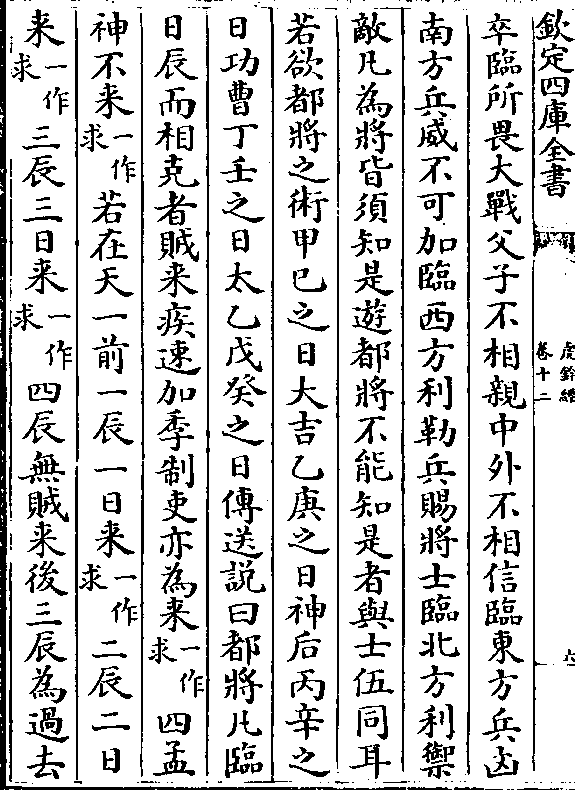 欽定四庫全書
虎鈐經
卷十二
六
卒臨所畏大戰父子不相親中外不相信臨東方兵凶
南方兵威不可加臨西方利勒兵賜將士臨北方利禦
敵凡為將皆須知是遊都將不能知是者與士伍同耳
若欲都將之術甲己之日大吉乙庚之日神后丙辛之
日功曹丁壬之日太乙戊癸之日傳送說曰都將凡臨
日辰而相克者賊来疾速加季制吏亦為来一作求四孟
神不来一作求若在天一前一辰一日来一作求二辰二日
来一作求三辰三日来一作求四辰無賊来後三辰為過去